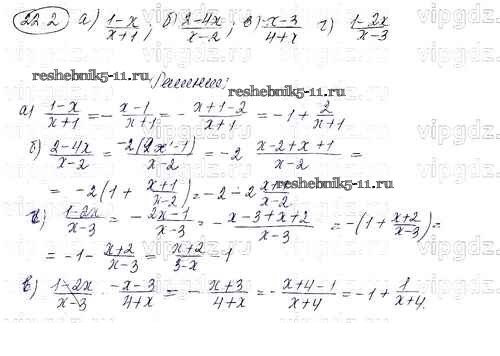 22.2 а) (1-x)/(x+1); б) (2-4x)/(x-2); в) (-x-3)/(4+x) г) (1-2x)/(x-3)
reshebnik5-11.ru Решение: reshebnik5-11.ru
а) (1-x)/(x+1) = -(x-1)/(x+1) = -(x+1-2)/(x+1) = -1+2/(x+1)
б) (2-4x)/(x-2) = -2(2x-1)/(x-2) = -2 (x-2+x+1)/(x-2) =
= -2(1+(x+1)/(x-2)) = -2-2 (x+1)/(x-2) reshebnik5-11.ru
г) (1-2x)/(x-3) = -(2x-1)/(x-3) = -(x-3+x+2)/(x-3) = -(1+(x+2)/(x-3)) =
= -1-(x+2)/(x-3) = (x+2)/(3-x) - 1
в) (1-2x)/(x-3) · (-x-3)/(4+x) = -(x+3)/(4+x) = -(x+4-1)/(x+4) = -1+1/(x+4).